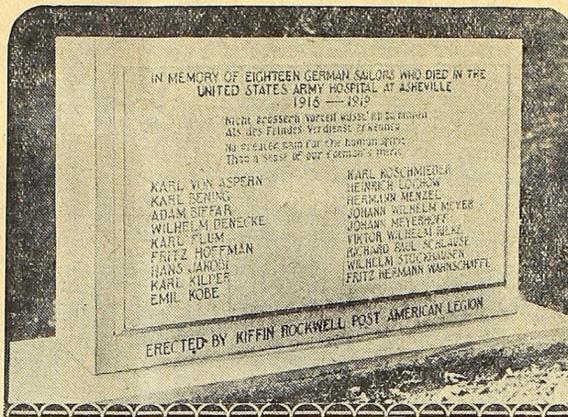 IN MEMORY OF EIGHTEEN GERMAN SAILORS WHO DIED IN THE
UNITED STATES ARMY HOSPITAL AT ASHEVILLE
1918 — 1919
Nicht grossern Vorteil wusst' ich zu nennen
Als des Feindes Verdienst erkennen
No greater gain for the human spirit
Than a sense of our foeman's merit
KARL VON ASPERN
KARL BENING
ADAM BIFFAR
WILHELM DENECKE
KARL FLUM
FRITZ HOFFMAN
HANS JAKOBI
KARL KILPER
EMIL KOBE
KARL KOSCHMIEDER
HEINRICH LOCHOW
HERMANN MENZEL
JOHANN WILHELM MEYER
JOHANN MEYERHOFF
VIKTOR WILHELM RIEKE
RICHARD PAUL SCHLAUSE
WILHELM STOCKHAUSEN
FRITZ HERMANN WAHNSCHAFFE
ERECTED BY KIFFIN ROCKWELL POST AMERICAN LEGION